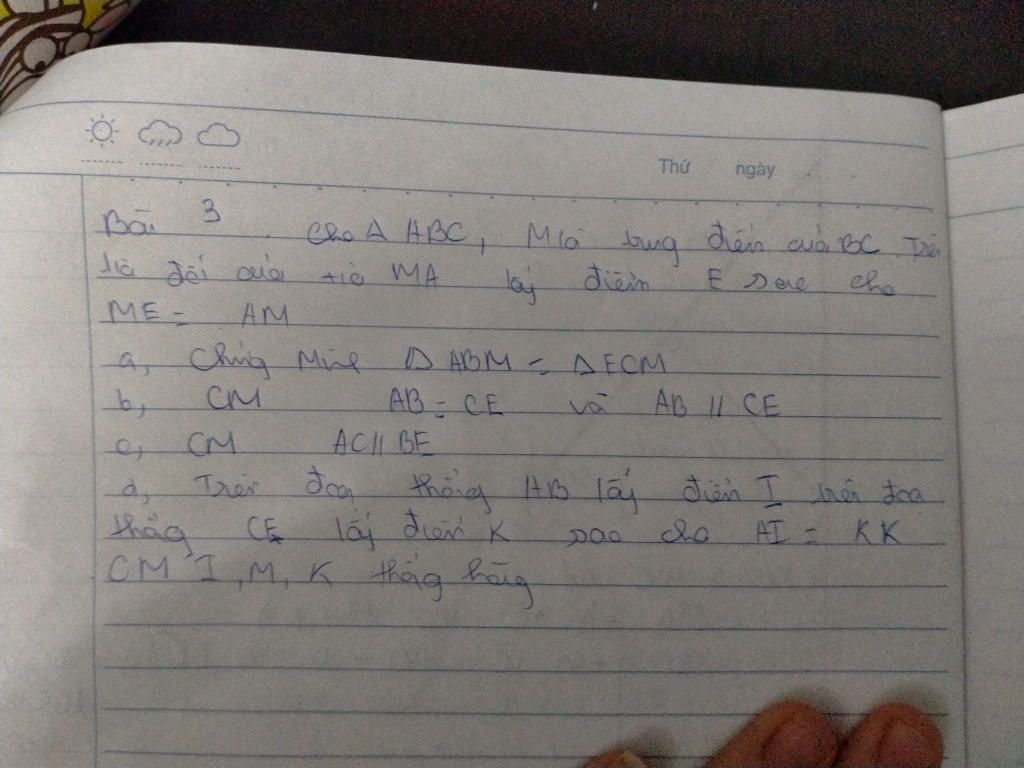 Thứ ngày
Bài 3. Cho Δ ABC, M là trung điểm của BC. Trên
tia đối của tia MA lấy điểm E sao cho
ME = AM
a, Chứng Minh Δ ABM = Δ ECM
b, CM AB = CE và AB // CE
c, CM AC // BE
d, Trên đoạn thẳng AB lấy điểm I trên đoạn
thẳng CE lấy điểm K sao cho AI = KK
CM I, M, K thẳng hàng